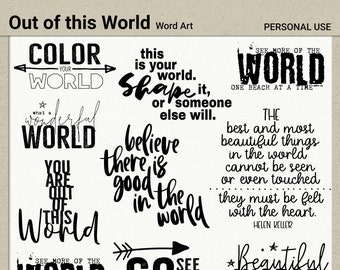 Out of this World Word Art
PERSONAL USE
COLOR
YOUR
WORLD
this
is your
world.
shape it,
or someone
else will.
SEE MORE OF THE
WORLD
ONE BEACH AT A TIME
what a
wonderful
WORLD
believe
there is
good in
the world
THE
best and most
beautiful things
in the world
cannot be seen
or even touched
they must be felt
with the heart.
HELEN KELLER
YOU
ARE
OUT
OF
THIS
World
SEE MORE OF THE
WORLD
GO
SEE
Beautiful